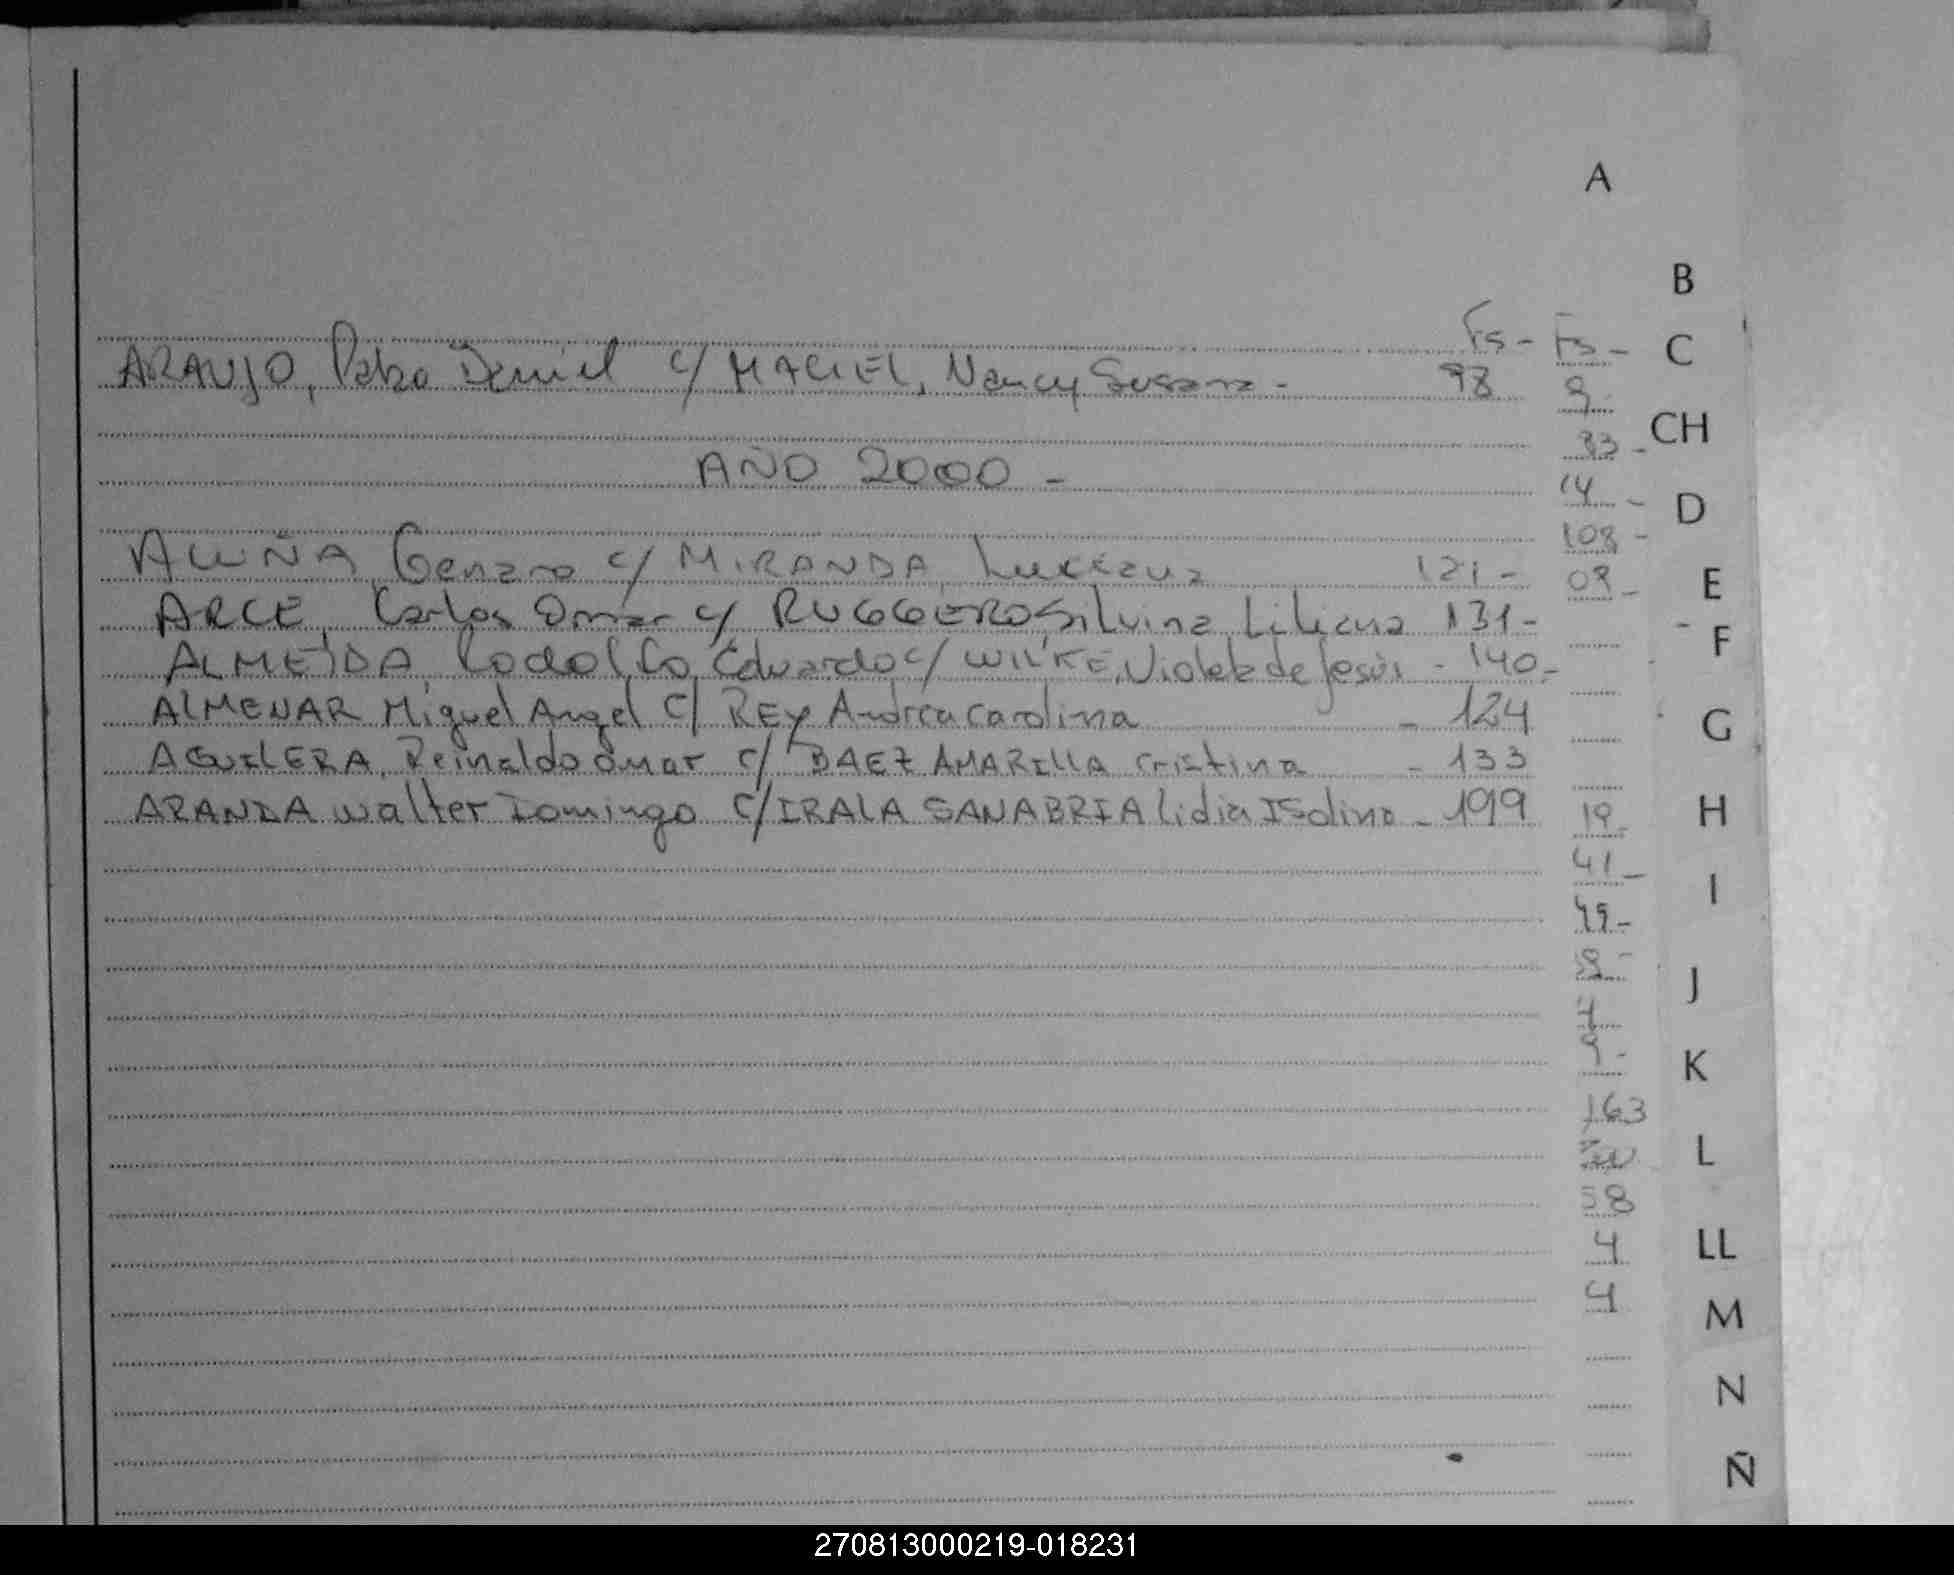 A
Fs -
ARAUJO, Pablo Daniel c/ MACIEL, Nancy Susana - 98
AÑO 2000 -
ACUÑA, Genaro c/ MIRANDA, 121 -
ARCE, Carlos Omar c/ RUGGERO, Silvina Liliana 131 -
ALMEIDA, Rodolfo Eduardo c/ WILKE, Violeta de Jesús - 140 -
ALMENAR Miguel Angel c/ REY Andrea Carolina - 124
AGUILERA, Reinaldo Omar c/ BAEZ AMARILLA Cristina - 133
ARANDA Walter Domingo c/ IRALA SANABRIA Lidia Isolina - 199
Fs -
9
14 -
108 -
19 -
41 -
163
58
4
4
B
C
CH
D
E
F
G
H
I
J
K
L
LL
M
N
Ñ
270813000219-018231